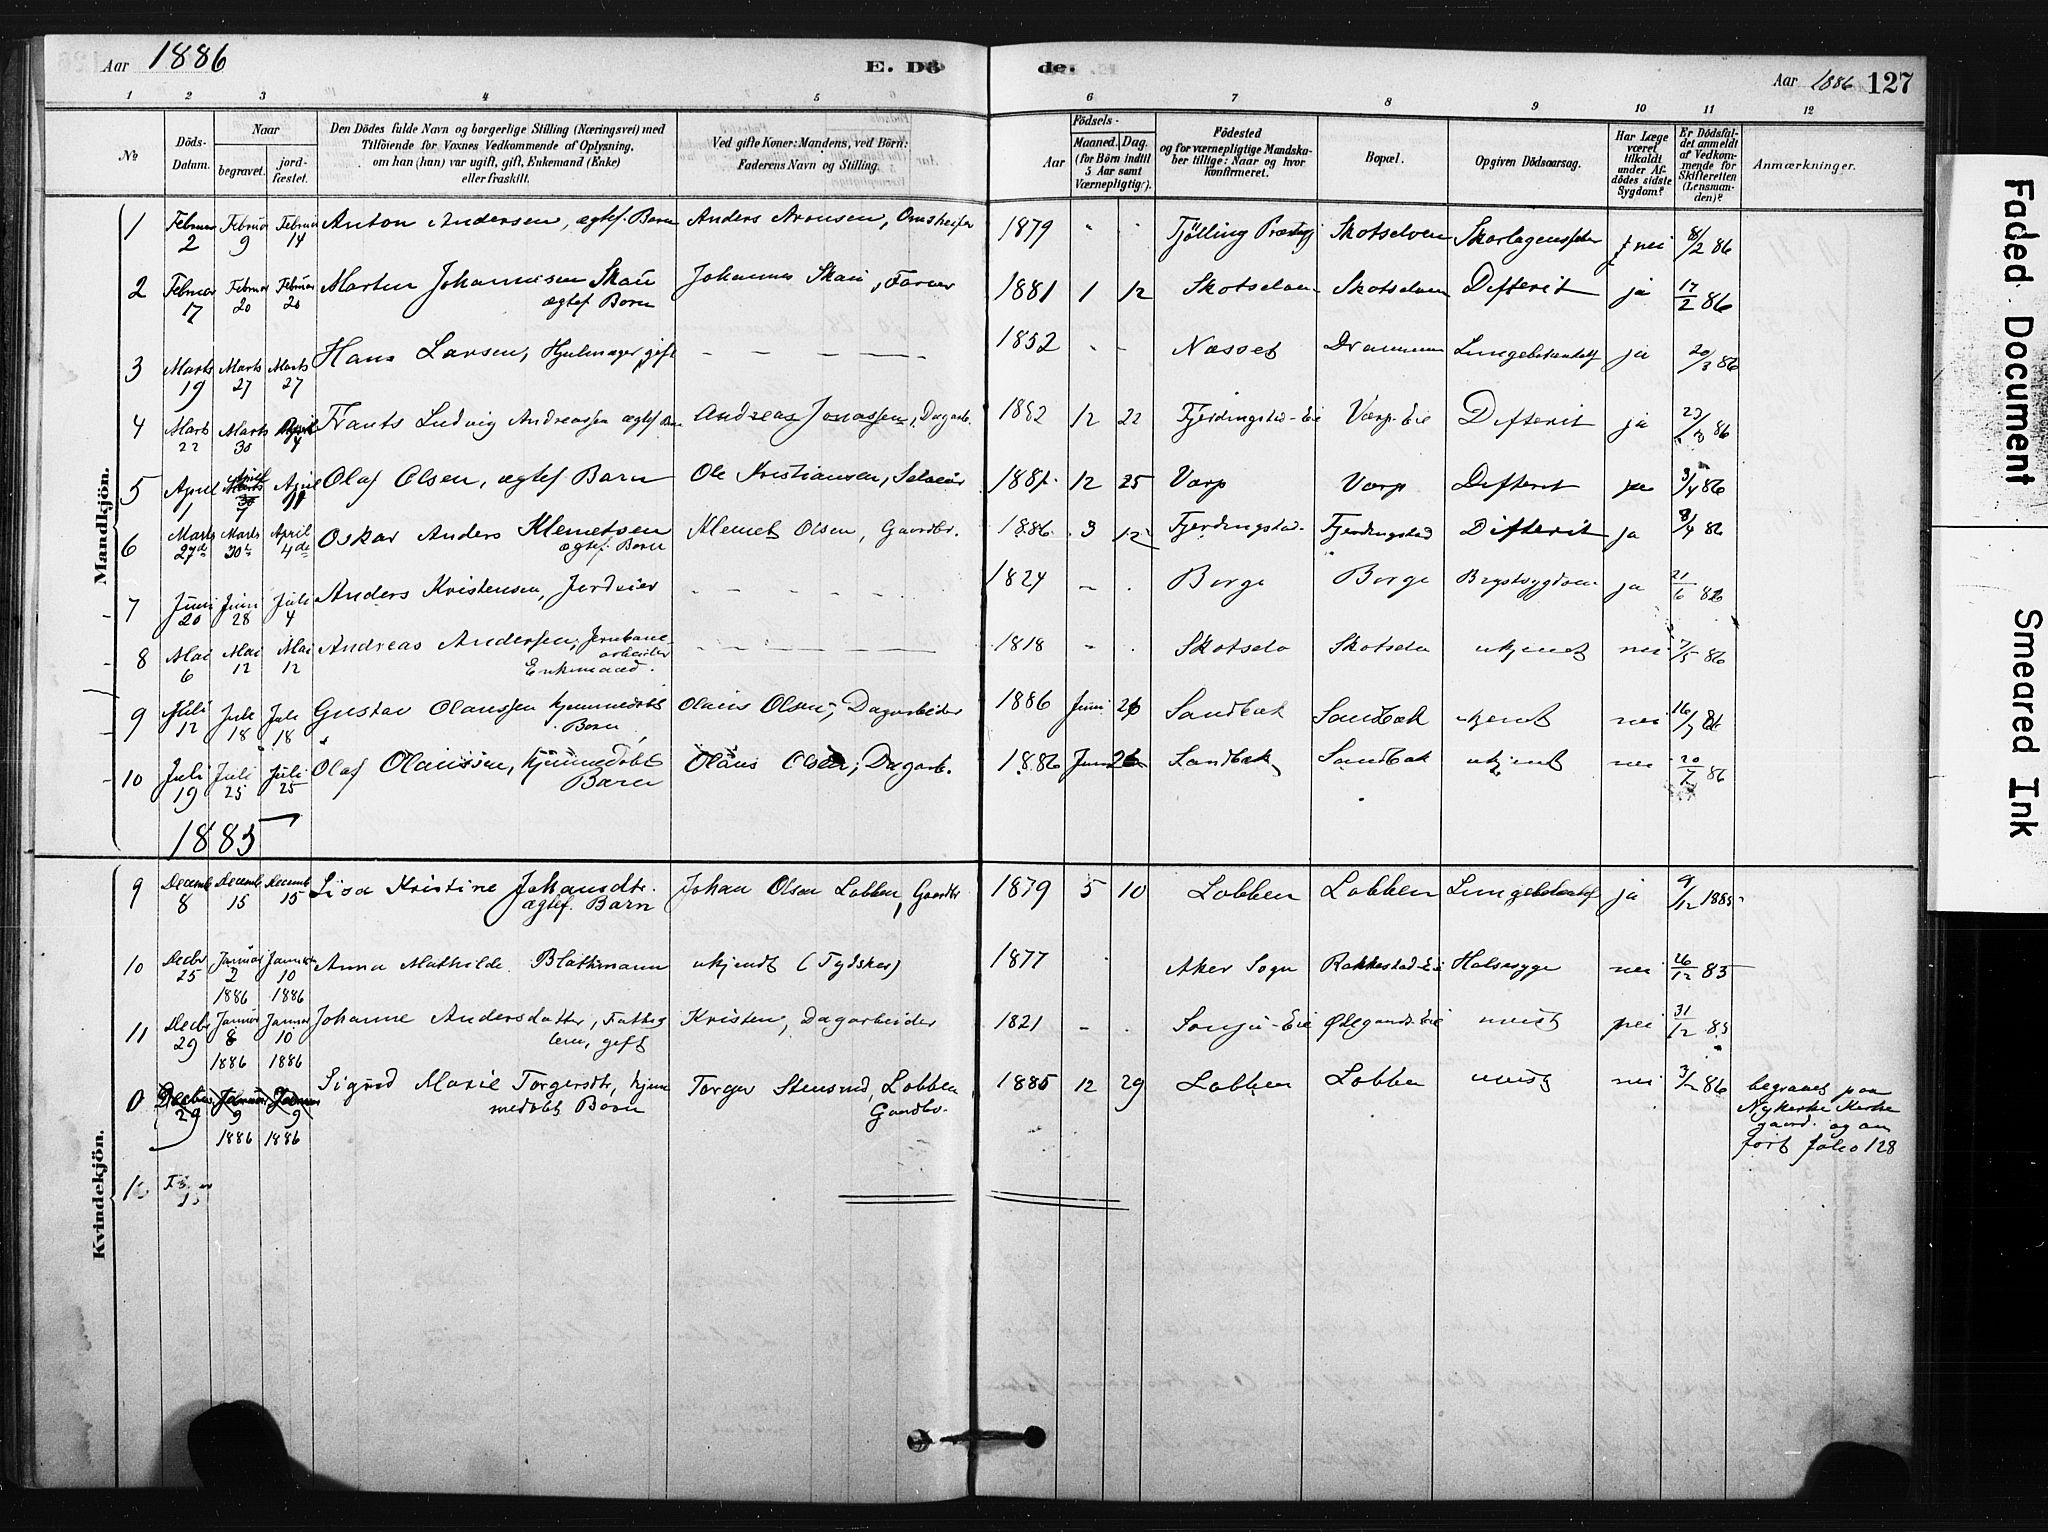 Aar 1886 E. Dö de. Aar 1886 127
1 2 3 4 5 6 7 8 9 10 11 12
No
Döds-Datum.
Naar
begravet.
jord-fæstet.
Den Dödes fulde Navn og borgerlige Stilling (Næringsvei) med
Tilföiende for Voxnes Vedkommende af Oplysning,
om han (hun) var ugift, gift, Enkemand (Enke)
eller fraskilt.
Ved gifte Koner: Mandens, ved Börn:
Faderens Navn og Stilling.
Födsels-
Aar
Maaned. Dag.
(for Börn indtil
5 Aar samt
Værnepligtige).
Födested
og for værnepligtige Mandska-
ber tillige: Naar og hvor
konfirmeret.
Bopæl.
Opgiven Dödsaarsag.
Har Læge
været
tilkaldt
under Af-
dödes sidste
Sygdom?
Er Dödsfal-
det anmeldt
af Vedkom-
mende for
Skifteretten
(Lensman-
den)?
Anmærkninger.
Mandkjön.
1 Februar 2 Februar 9 Februar 14 Anton Andersen, ægtef. Barn Anders Aronsen, 1879 Tjölling Skotselven nei 8/2 86
2 Februar 17 Februar 20 Februar 20 Marten Johannisen Skau ægtef Barn Johannes Skau, Farver 1881 1 12 Skotselven Skotselven Difterit ja 17/2 86
3 Marts 19 Marts 27 Marts 27 Hans Larsen, Hjulmager, gift – – – – – 1852 Næsset Drammen Lungebetændelse ja 20/3 86
4 Marts 22 Marts 30 April 4 Frants Ludvig Andreassen ægtef Barn Andreas Jonassen, Dagarb. 1882 12 22 Fjerdingstad-Eie Varp-Eie Difterit ja 23/3 86
5 April 1 April 7 April 11 Olaf Olsen, ægtef Barn Ole Kristiansen, Selveier 1881 12 25 Varp Varp Difterit ja 3/4 86
6 Marts 27de Marts 30te April 4de Oskar Anders Klemetsen ægtef. Barn Klemet Olsen, Gaardbr. 1886 3 12 Fjerdingstad Fjerdingstad Difterit ja 8/4 86
7 Juni 20 Juni 28 Juli 4 Anders Kristensen, Jordeier – – – – – 1824 – Berge Berge Brystsygdom ja 21/6 86
8 Mai 6 Mai 12 Mai 12 Andreas Andersen, Jernbanearbeider Enkemand. – – – – – 1818 – Skotselv Skotselv ukjendt nei 7/5 86
9 Juli 12 Juli 18 Juli 18 Gustav Olaussen hjemmedøbt Barn Olaus Olsen, Dagarbeider 1886 Juni 26 Sandbæk Sandbæk ukjent nei 16/7 86
10 Juli 19 Juli 25 Juli 25 Olaf Olaussen, hjemmedøbt Barn Olaus Olsen, Dagarb. 1886 Juni 26 Sandbæk Sandbæk ukjent nei 20/7 86
1885
Kvindekjön.
9 Decemb 8 Decemb 15 Decemb 15 Lisa Kristine Johansdtr. ægtef. Barn Johan Olsen Lobben, Gaardbr 1879 5 10 Lobben Lobben Lungebetændelse ja 9/12 1885
10 Decbr 25 Januar 2 1886 Januar 10 1886 Anna Mathilde Blathmann ukjendt (Tydsker) 1877 Aker Sogn Rakkestad-Eie Halssyge nei 26/12 85
11 Decbr 29 Januar 8 1886 Januar 10 1886 Johanne Andersdatter, Fattiglem, gift Kristen, Dagarbeider 1821 – Ødegaards-Eie uvist nei 31/12 85
0 Decbr 29 Januar 9 1886 Januar 9 1886 Sigrid Marie Torgersdtr, hjemmedøbt Barn Torger Stensrud, Lobben Gaardbr. 1885 12 29 Lobben Lobben uvist nei 3/1 86 begravet paa
Nykirke Kirke
gaard. og an
ført folio 128
Faded Document
Smeared Ink